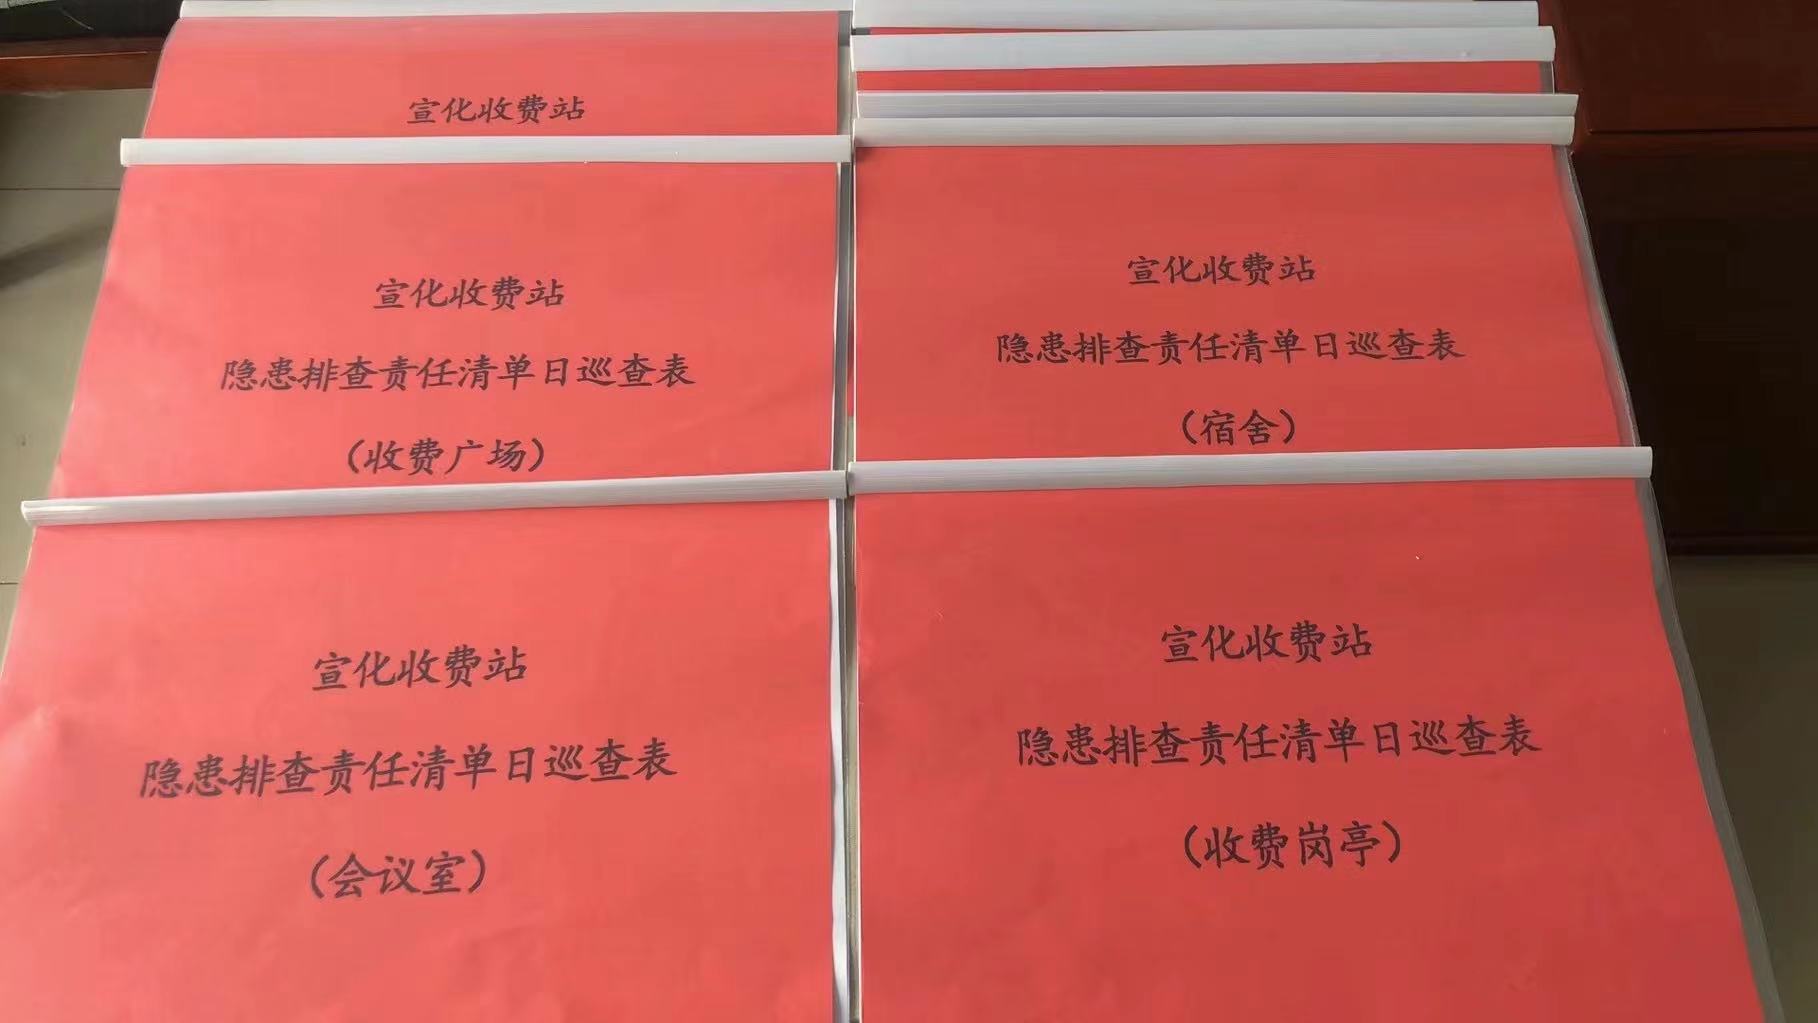 宣化收费站
宣化收费站
隐患排查责任清单日巡查表
（收费广场）
宣化收费站
隐患排查责任清单日巡查表
（宿舍）
宣化收费站
隐患排查责任清单日巡查表
（会议室）
宣化收费站
隐患排查责任清单日巡查表
（收费岗亭）